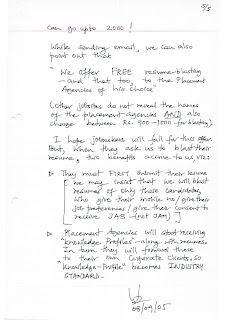 5/5
Can go upto 2000!
While sending email, we can also
point out that
"We offer FREE resume-blasting
— and that too, to the Placement
Agencies of his Choice"
(other jobsites do not reveal the names
of the placement agencies AND also
charge between Rs. 900-1000 for blasting).
I hope jobseekers will fall for this offer.
But, when they ask us to blast their
resume, two benefits accrue to us, viz:
▷ They must FIRST submit their resume
[ we may insist that we will blast
resumes of only those candidates,
who give their mobile no/give their
job preferences/give their consent to
receive JAB (not JAM) ]
▷ Placement Agencies will start receiving
"Knowledge Profiles" - along with resumes.
In turn they will forward these
to their own Corporate Clients. So
Knowledge-Profile becomes INDUSTRY
STANDARD.
08/09/05